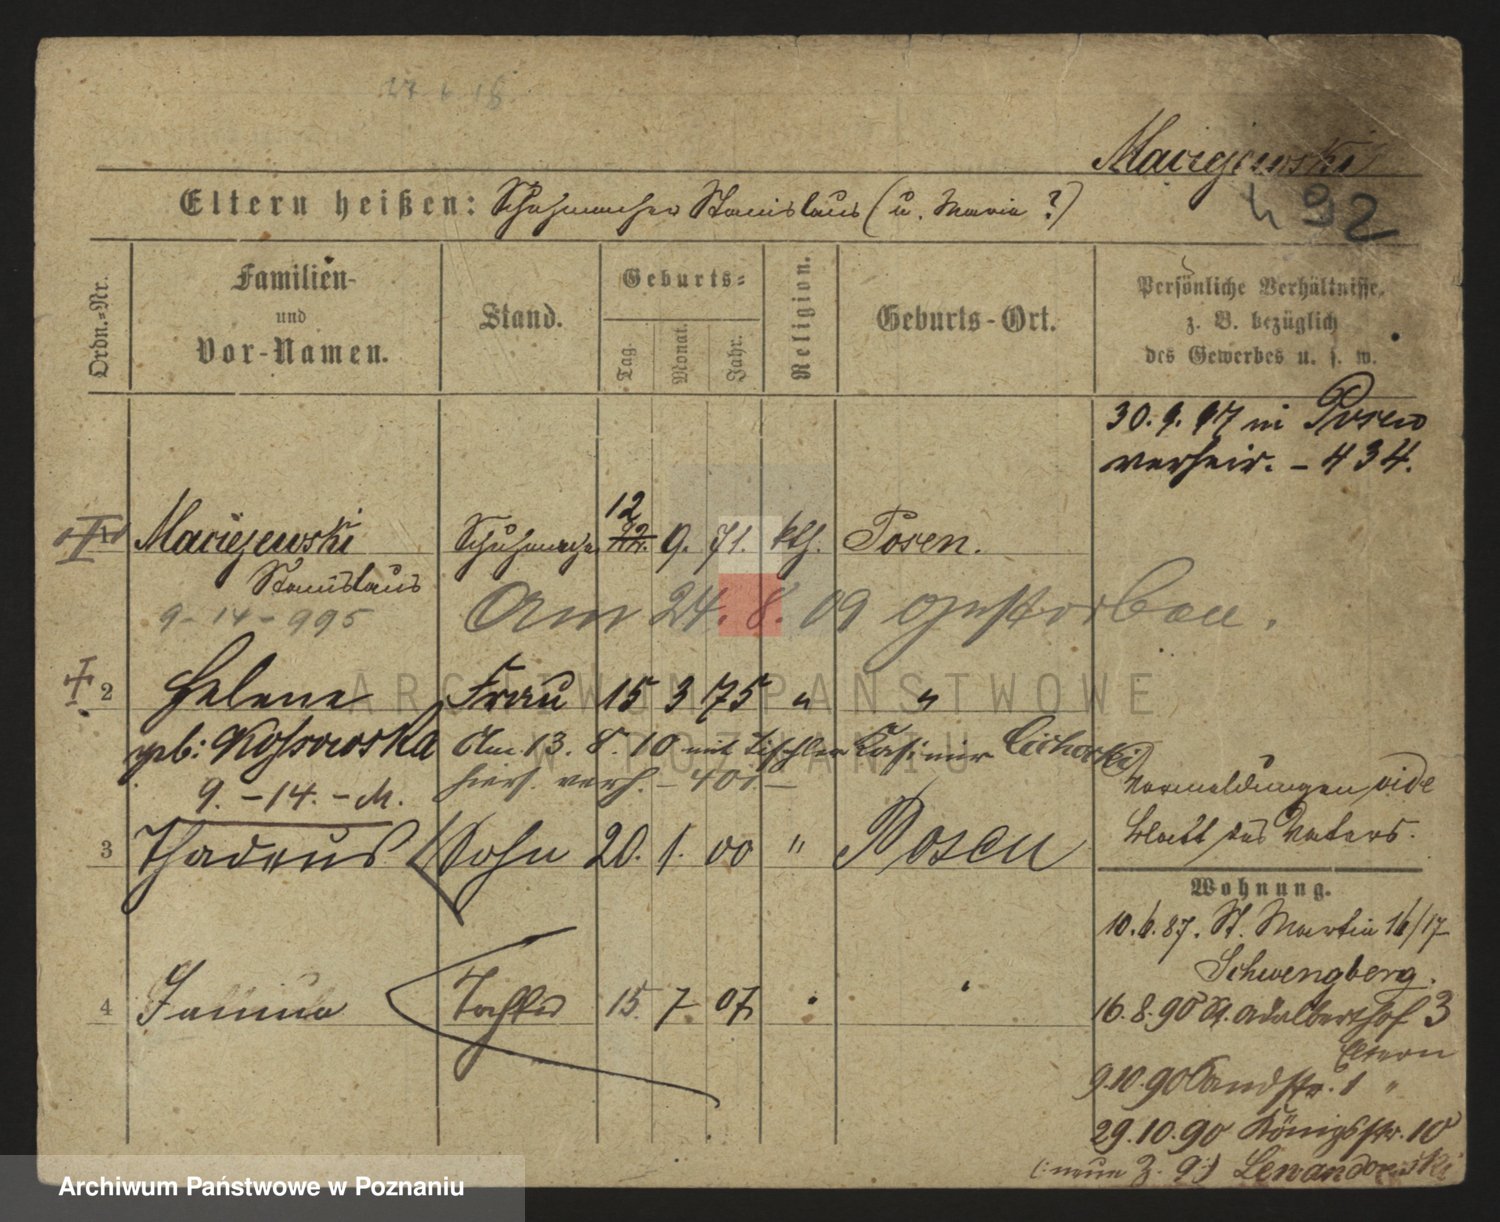 27.6.18
Maciejewski
92
Eltern heißen: Schuhmacher Stanislaus (u. Maria ?)
Ordn.-Nr.
Familien-
und
Vor-Namen.
Stand.
Geburts-
Tag.
Monat.
Jahr.
Religion.
Geburts-Ort.
Persönliche Verhältnisse,
z. B. bezüglich
des Gewerbes u. s. w.
30.9.97 in Posen
verheir. - 434.
Maciejewski Schuhmacher 12 9. 71. kth. Posen.
Stanislaus
9-14-995
Am 24.8.09 gestorben.
2 Helene Frau 15 3 75 " "
geb: Kossowska Am 13. 8. 10 mit Tischler Kasimir Cichocki
hiers. verh. - 401 -
9. - 14. - M.
Vermeldungen vide
Blatt des Vaters.
3 Thadeus Sohn 20. 1. 00 " Posen
Wohnung.
10.6.87. St. Martin 16/17
Schwengberg.
4 Janina Tochter 15. 7 07
16.8.90 St. Adalberthof 3
Eltern
9.10.90 Sandstr. 1 "
29.10.90 Königsstr. 10
(neue Z. 9) Lewandowski
ARCHIWUM PAŃSTWOWE
W POZNANIU
Archiwum Państwowe w Poznaniu